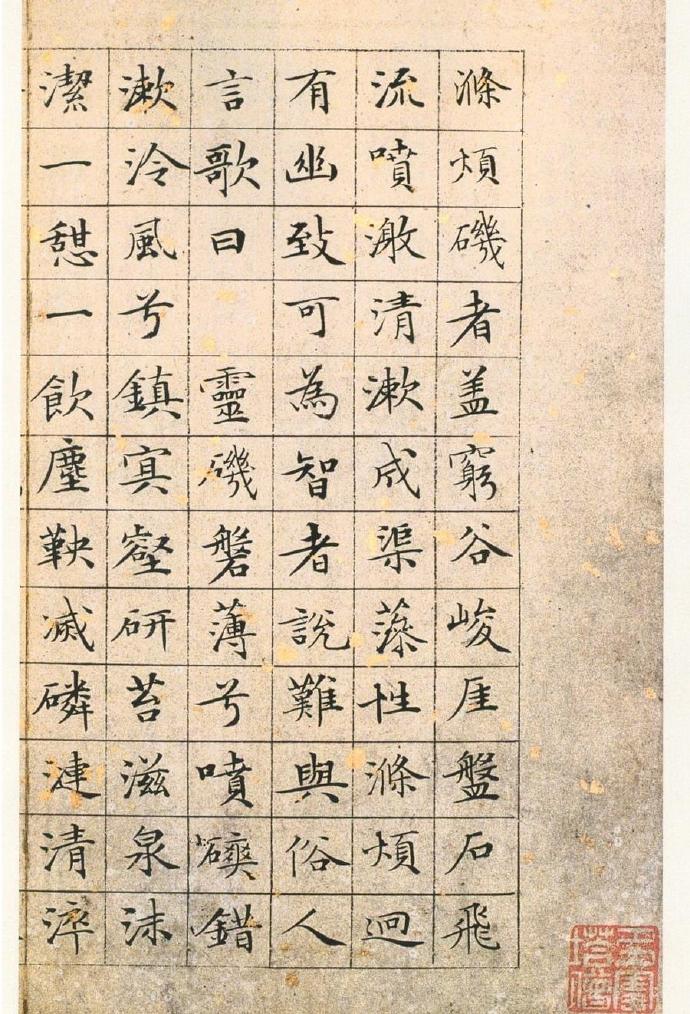 滌煩磯者盖窮谷峻厓盤石飛
流噴激清漱成渠藻性滌煩迥
有幽致可為智者說難與俗人
言歌曰　靈磯磐薄兮噴錯
漱泠風兮鎮冥壑研苔滋泉沫
潔一憩一飲塵鞅滅磷漣清淬